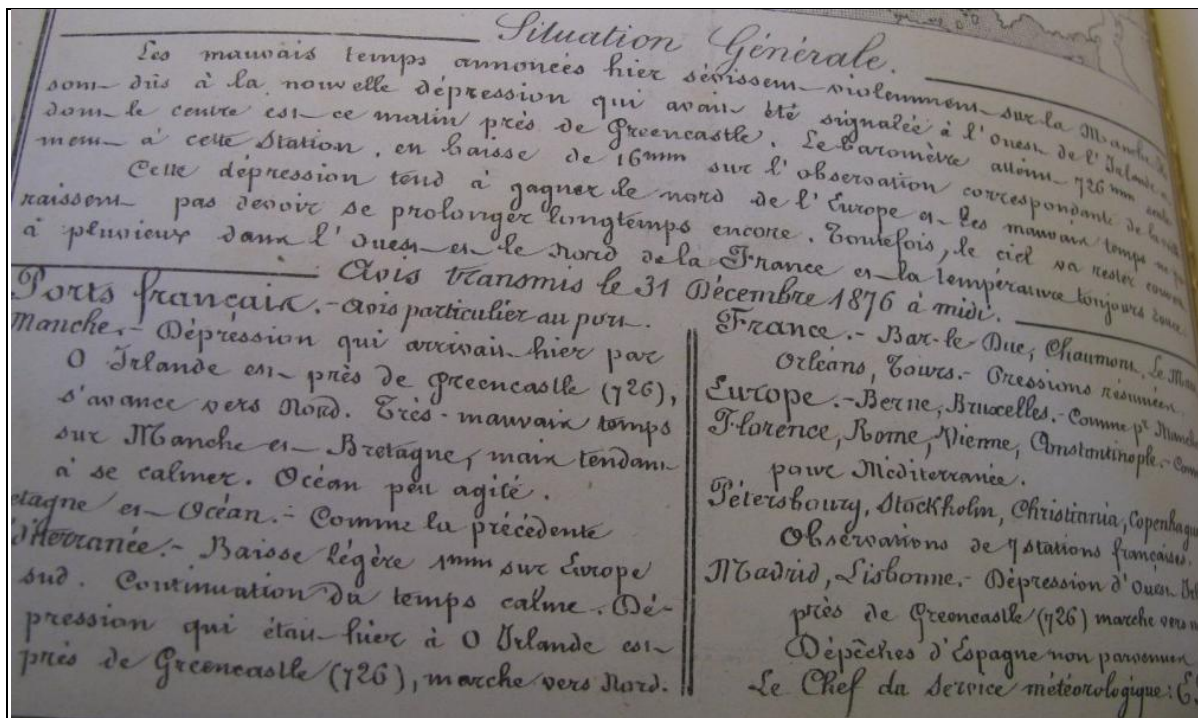 Situation Générale.
Les mauvais temps annoncés hier sévissent violemment sur la Manche
sont dûs à la nouvelle dépression qui avait été signalée à l'Ouest de l'Irlande
dont le centre est ce matin près de Greencastle. Le baromètre atteint 726mm
ment à cette Station, en baisse de 16mm sur l'observation correspondante de la
Cette dépression tend à gagner le nord de l'Europe et les mauvais temps ne
raissent pas devoir se prolonger longtemps encore. Toutefois, le ciel va rester couvert
à pluvieux dans l'Ouest et le Nord de la France et la température toujours douce
Avis transmis le 31 Décembre 1876 à midi.
Ports français.- Avis particulier au port.
Manche.- Dépression qui arrivait hier par
O Irlande est près de Greencastle (726),
s'avance vers Nord. Très-mauvais temps
sur Manche et Bretagne, mais tendant
à se calmer. Océan peu agité.
etagne et Océan.- Comme la précédente
diterranée.- Baisse légère 1mm sur Europe
sud. Continuation du temps calme. Dé-
pression qui était hier à O Irlande est
près de Greencastle (726), marche vers Nord.
France.- Bar-le Duc, Chaumont, Le
Orléans, Tours.- Pressions résumées.
Europe.- Berne, Bruxelles.- Comme pr Manche
Florence, Rome, Vienne, Constantinople.- Com
pour Méditerranée.
Pétersbourg, Stockholm, Christiania, Copenhague
Observations de 7 stations françaises.
Madrid, Lisbonne.- Dépression d'Ouest
près de Greencastle (726) marche vers
Dépêches d'Espagne non parvenues.
Le Chef du Service météorologique: